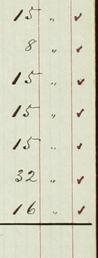 15 " ✓
8 " ✓
15 " ✓
15 " ✓
15 " ✓
32 " ✓
16 " ✓